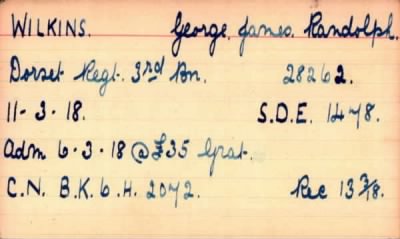 WILKINS. George. James. Randolph.
Dorset Regt. 3rd Bn. 28262.
11-3-18. S.D.E. 1478.
Adm 6.3.18 @ £35 Grat.
C.N. B.K.6.H. 2072. Rec 13 3/18.